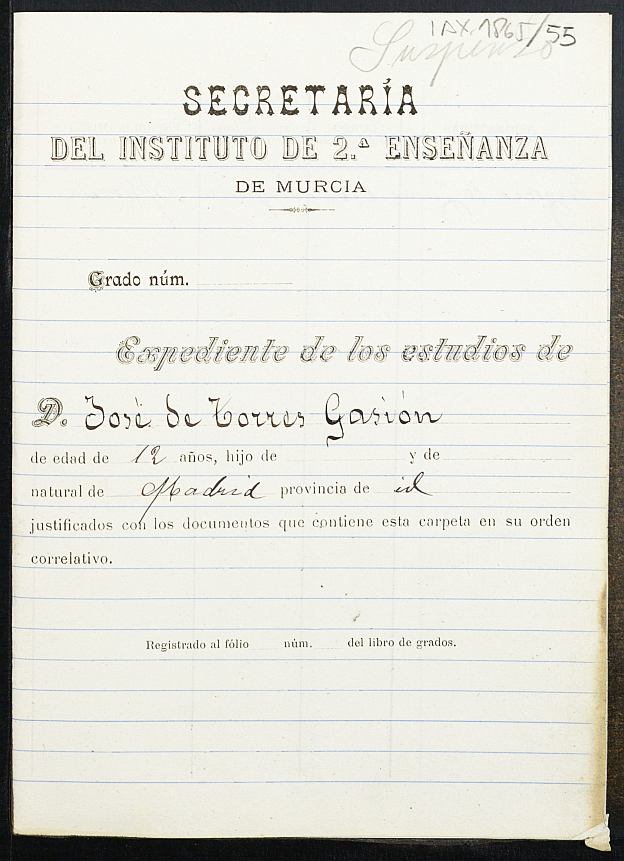 IAX.1865/55
Suspenso
SECRETARÍA
DEL INSTITUTO DE 2.ª ENSEÑANZA
DE MURCIA
Grado núm.
Expediente de los estudios de
D. José de Torres Gasión
de edad de 12 años, hijo de y de
natural de Madrid provincia de id
justificados con los documentos que contiene esta carpeta en su orden
correlativo.
Registrado al fólio núm. del libro de grados.